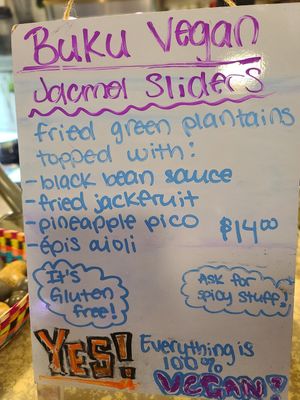 Buku Vegan
Jacmel Sliders
fried green plantains
topped with:
-black bean sauce
-fried jackfruit
-pineapple pico
$14.00
-épis aioli
It's
Gluten
free!
Ask for
spicy stuff!
YES!
Everything is
100%
VEGAN!